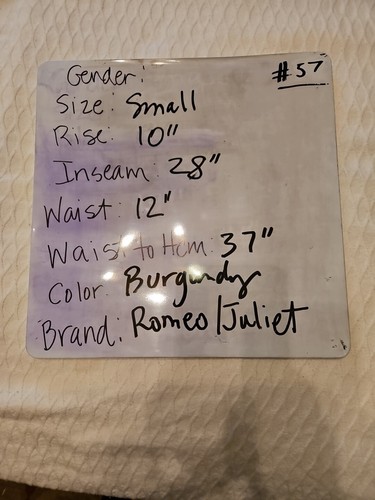 Gender: #57
Size: Small
Rise: 10"
Inseam: 28"
Waist: 12"
Waist to Hem: 37"
Color: Burgundy
Brand: Romeo/Juliet